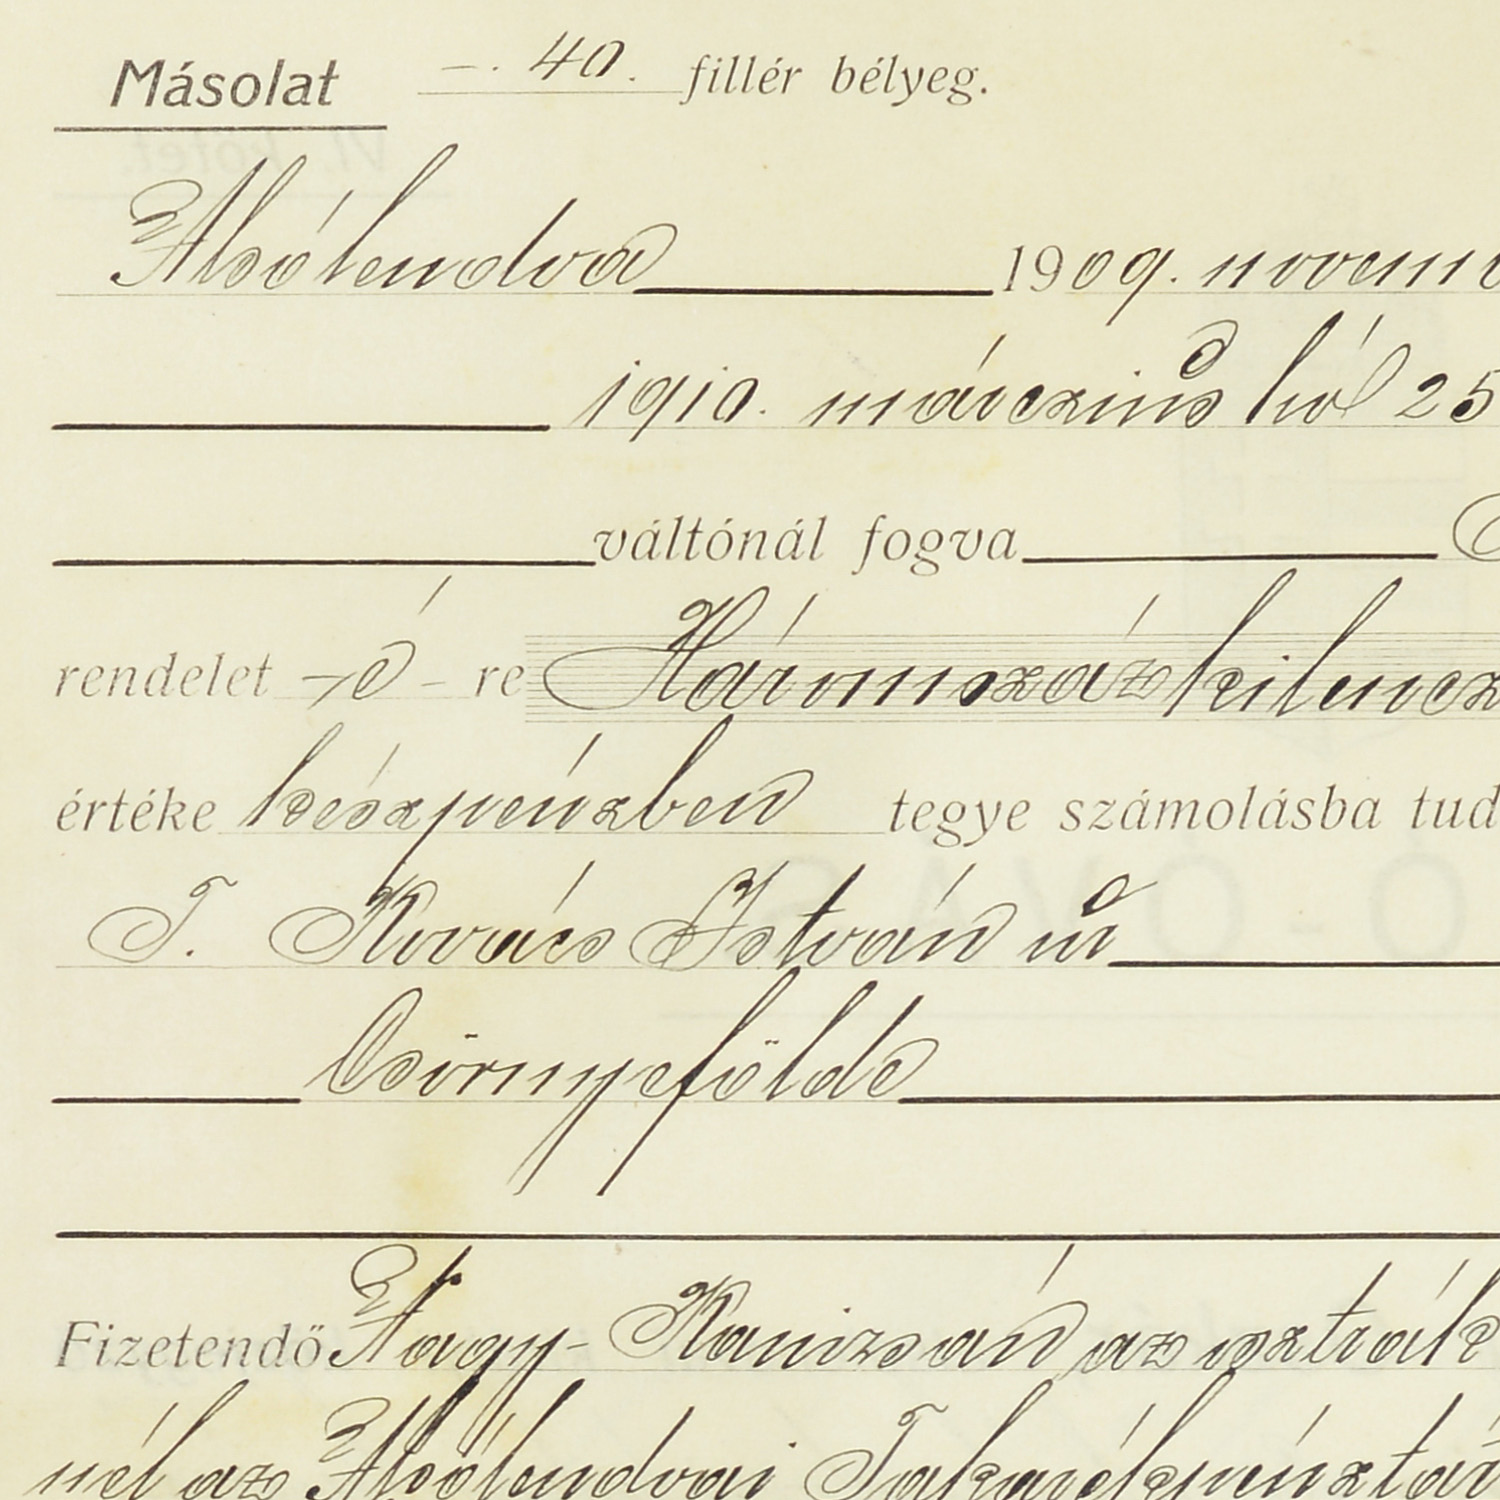 Másolat —. 40. fillér bélyeg.
Alsólendva 1909. novem
1910. márczius hó 25
váltónál fogva
rendelet -é- re Háromszázkilencz
értéke készpénzben tegye számolásba tud
T. Kovács István úr
Csörnyefölde
Fizetendő Nagy-Kanizsán az osztrák
nél az Alsólendvai Takarékpénztár